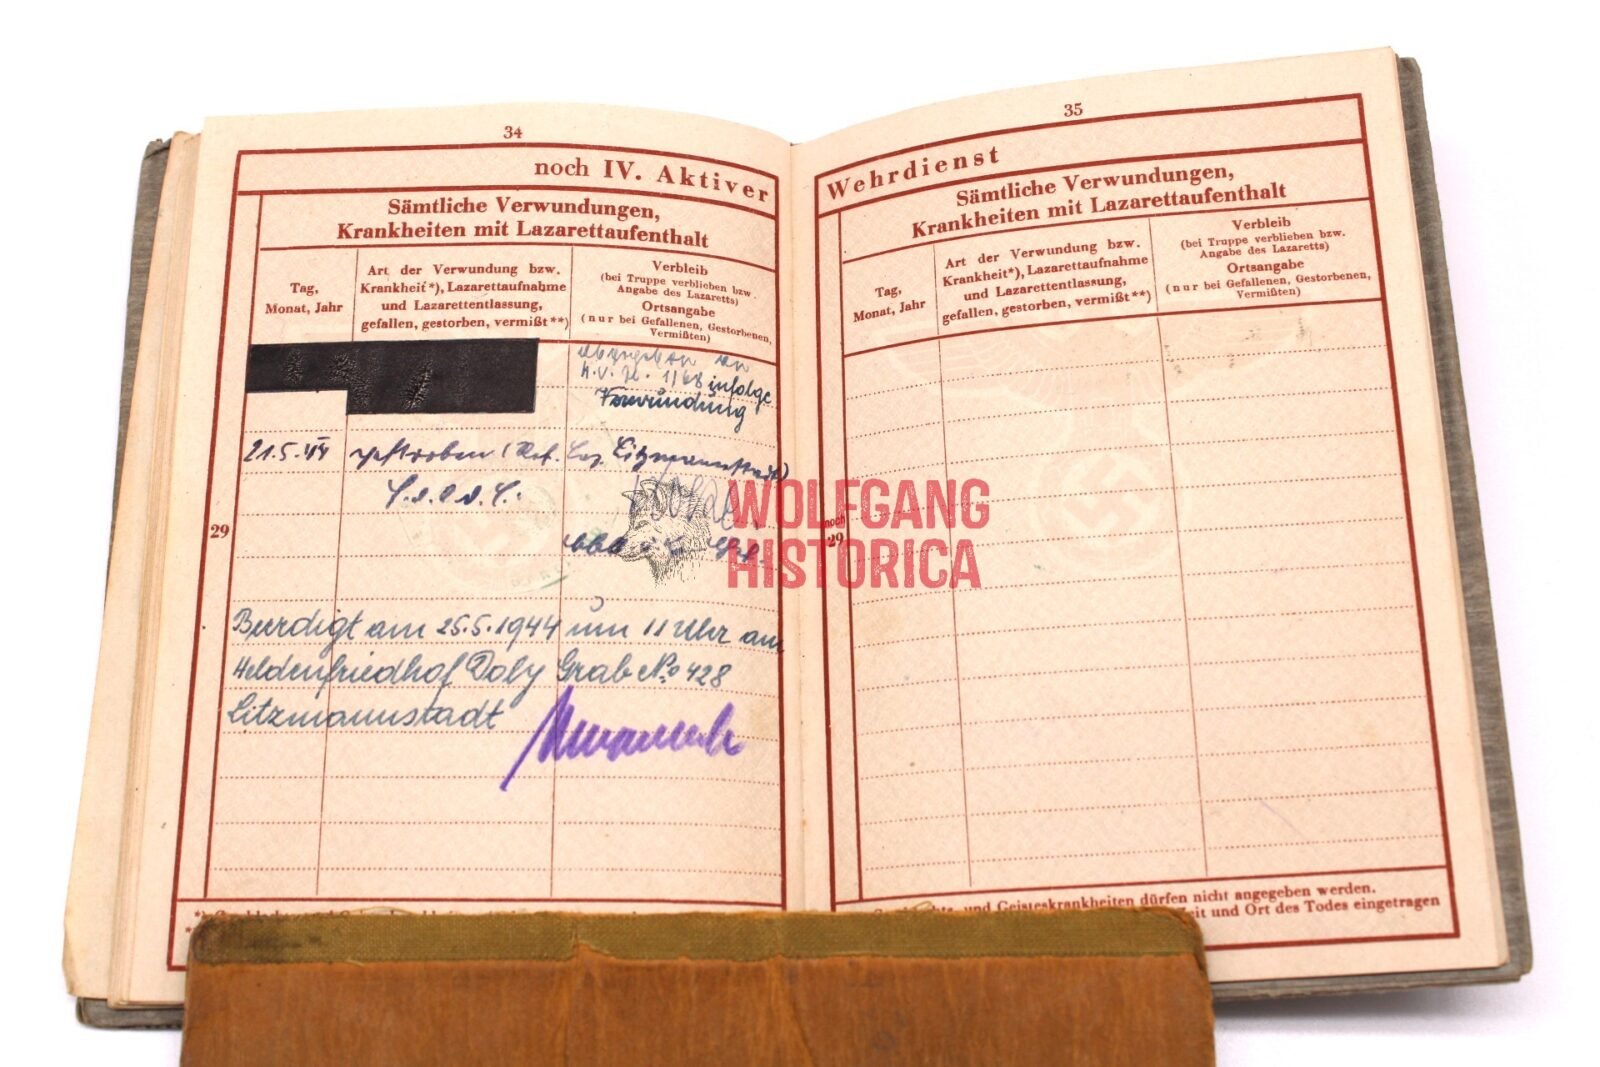 34
noch IV. Aktiver
Sämtliche Verwundungen,
Krankheiten mit Lazarettaufenthalt
Tag,
Monat, Jahr
Art der Verwundung bzw.
Krankheit*), Lazarettaufnahme
und Lazarettentlassung,
gefallen, gestorben, vermißt**)
Verbleib
(bei Truppe verblieben bzw.
Angabe des Lazaretts)
Ortsangabe
(nur bei Gefallenen, Gestorbenen,
Vermißten)
infolge
Verwundung
21.5.44 gestorben (Res. Laz. Litzmannstadt)
29
Beerdigt am 25.5.1944 um 11 Uhr am
Heldenfriedhof Doly Grab No 428
Litzmannstadt
35
Wehrdienst
Sämtliche Verwundungen,
Krankheiten mit Lazarettaufenthalt
Tag,
Monat, Jahr
Art der Verwundung bzw.
Krankheit*), Lazarettaufnahme
und Lazarettentlassung,
gefallen, gestorben, vermißt**)
Verbleib
(bei Truppe verblieben bzw.
Angabe des Lazaretts)
Ortsangabe
(nur bei Gefallenen, Gestorbenen,
Vermißten)
noch
29
und Geisteskrankheiten dürfen nicht angegeben werden.
und Ort des Todes eingetragen
WOLFGANG
HISTORICA